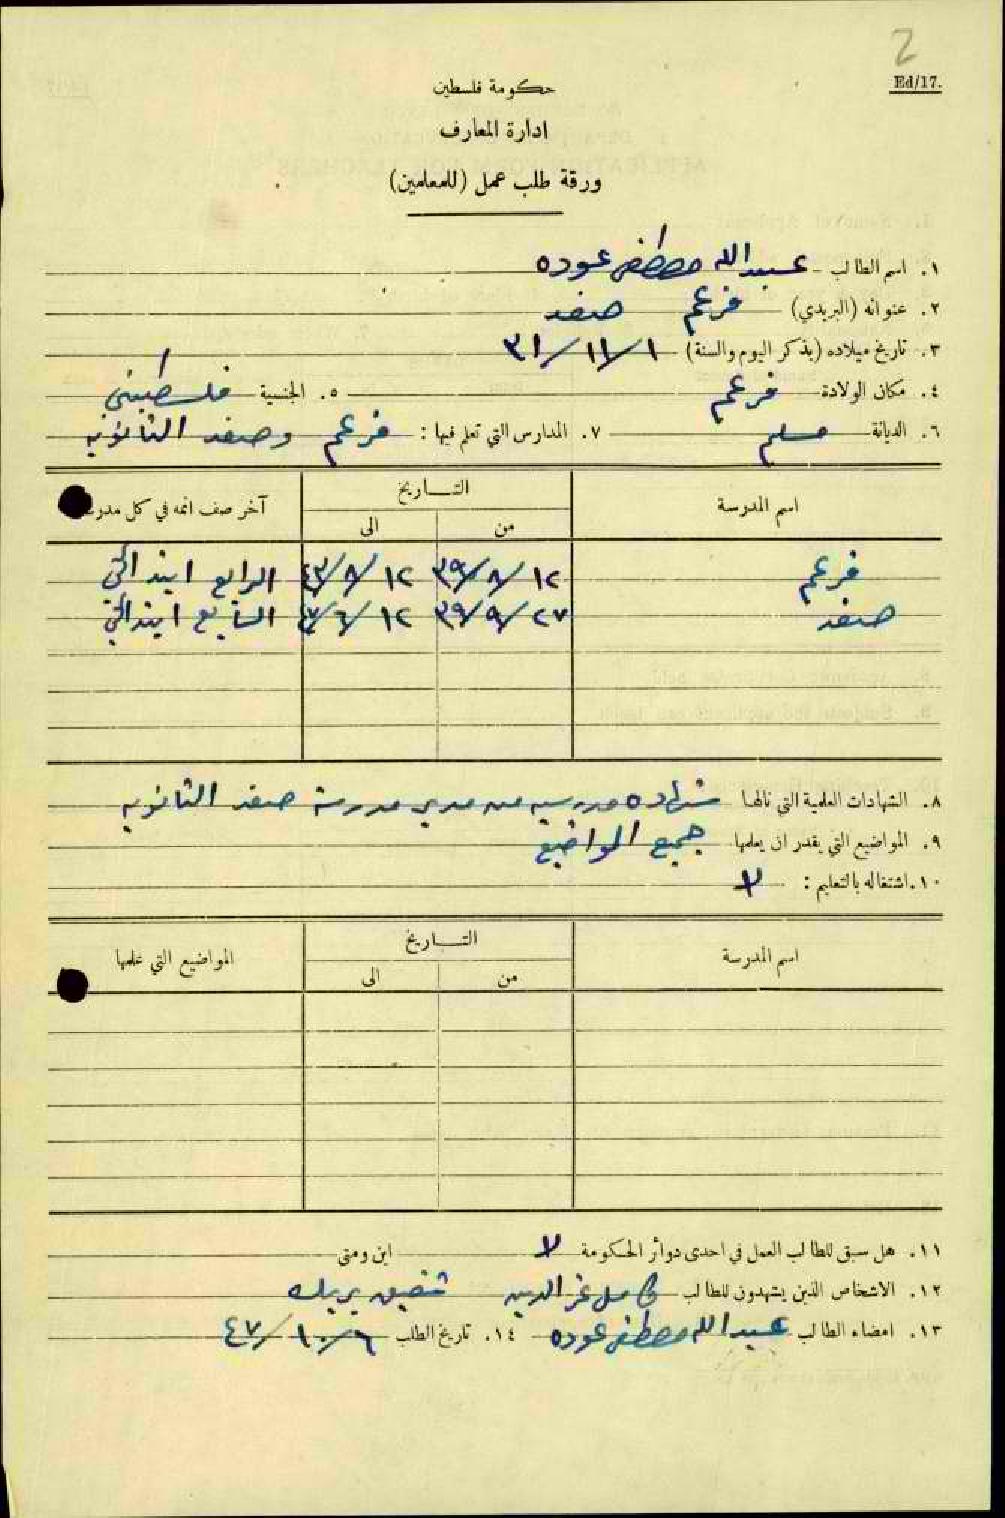 2
Ed/17.
حكومة فلسطين
ادارة المعارف
ورقة طلب عمل (للمعلمين)
١. اسم الطالب عبدالله مصطفى عوده
٢. عنوانه (البريدي) فرعم صفد
٣. تاريخ ميلاده (يذكر اليوم والسنة) ١/١١/٣١
٤. مكان الولادة فرعم ٥. الجنسية فلسطيني
٦. الديانة مسلم ٧. المدارس التي تعلم فيها: فرعم وصفد الثانويه
اسم المدرسة التاريخ آخر صف اتمه في كل مدرسة
من الى
فرعم ١٢/٨/٣٩ ١٢/٨/٤٣ الرابع ابتدائي
صفد ٢٧/٩/٣٩ ١٢/٦/٤٧ السابع ابتدائي
٨. الشهادات العلمية التي نالها شهاده مدرسيه من مدير مدرسة صفد الثانويه
٩. المواضيع التي يقدر ان يعلمها جميع المواضيع
١٠. اشتغاله بالتعليم: لا
اسم المدرسة التاريخ المواضيع التي علمها
من الى
١١. هل سبق للطالب العمل في احدى دوائر الحكومة لا اين ومتى
١٢. الاشخاص الذين يشهدون للطالب كامل عز الدين
١٣. امضاء الطالب عبدالله مصطفى عوده ١٤. تاريخ الطلب ٦/١٠/٤٧